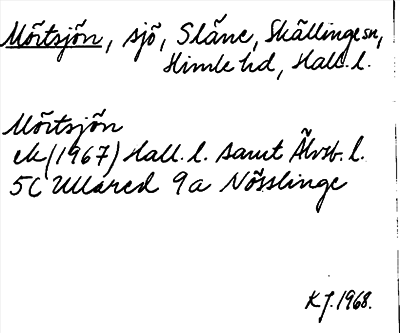 Mörtsjön, sjö, Släne, Skällinge sn,
Himle hd, Hall. l.
Mörtsjön
ek (1967) Hall. l. samt Älvsb. l.
5C Ullared 9a Nösslinge
K J. 1968.